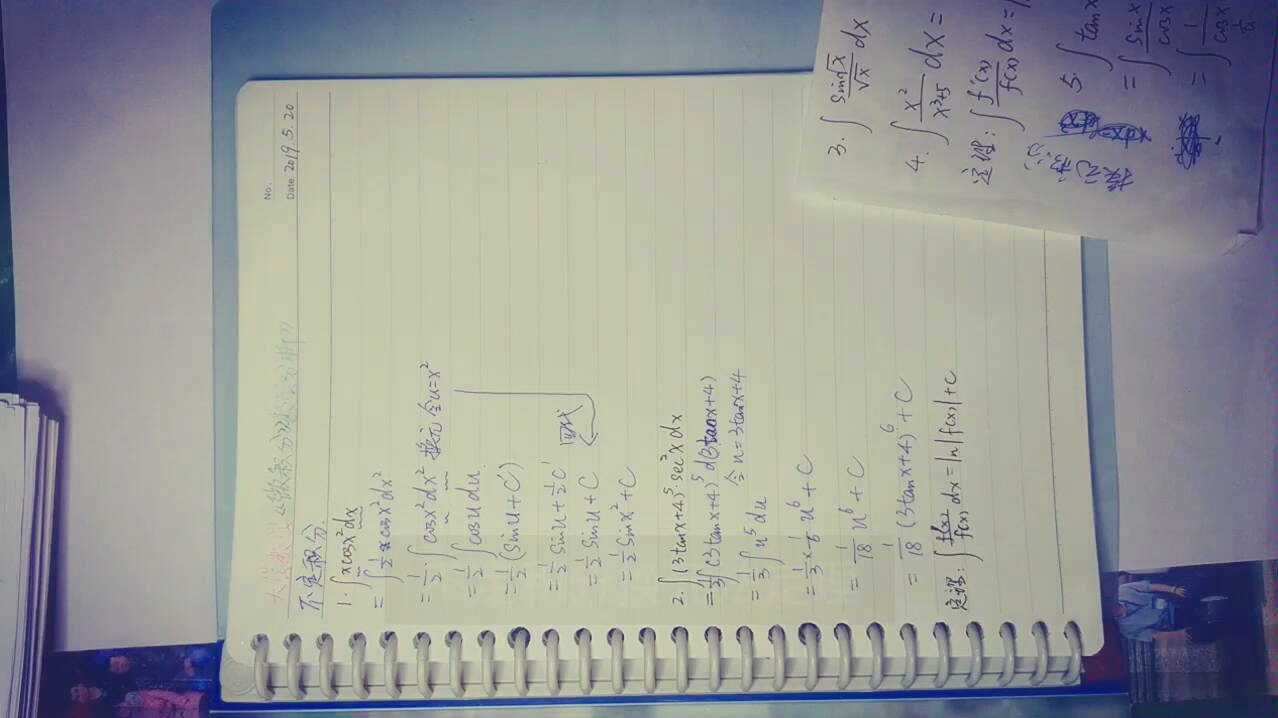 No.
Date 2019.5.20
不定积分.
1. ∫ x cosx² dx
= ∫ ½ cosx² dx²
= ½ · ∫ cosx² dx² 换元 令u=x²
= ½ ∫ cosu du
= ½ (sinu + C')
= ½ sinu + ½ C' 回代
= ½ sinu + C
= ½ sinx² + C
2. ∫ (3tanx+4)⁵ sec²x dx
= ⅓ ∫ (3tanx+4)⁵ d(3tanx+4)
令 u = 3tanx+4
= ⅓ ∫ u⁵ du
= ⅓ × ⅙ u⁶ + C
= 1/18 u⁶ + C
= 1/18 (3tanx+4)⁶ + C
定理: ∫ f'(x)/f(x) dx = ln|f(x)| + C
3. ∫ sin√x/√x dx
4. ∫ x²/(x³+5) dx =
定理: ∫ f'(x)/f(x) dx =
换元积分
5. ∫ tanx
= ∫ sinx/cosx
= ∫ 1/cosx